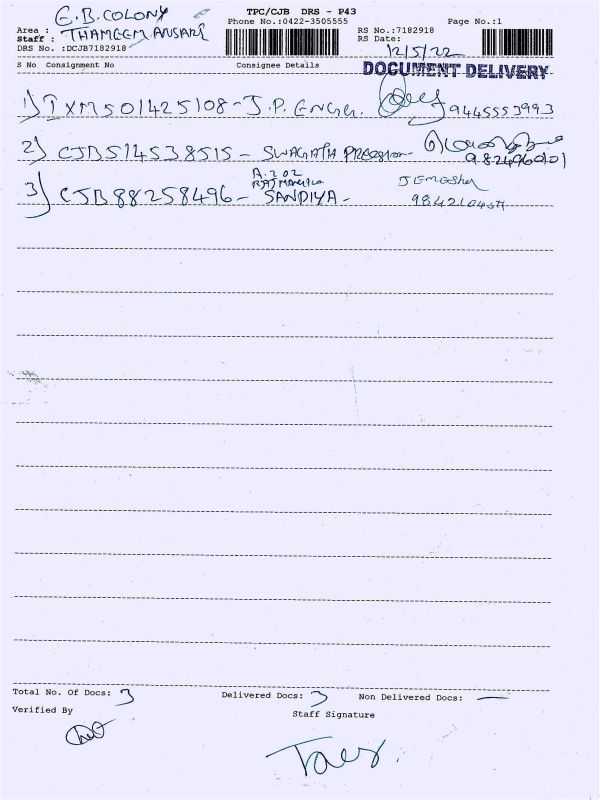 G.B. COLONY
TPC/CJB DRS - P43
Phone No.:0422-3505555
Page No.:1
Area :
Staff : THAMEEM ANSARI
RS No.:7182918
RS Date:
DRS No. :DCJB7182918
12/5/22
S No Consignment No Consignee Details
DOCUMENT DELIVERY
1) IXM501425108 - J.P. ENGG. 9445553993
2) CJB514538515 - SWAGATH
A.202
3) CJB88258496 - SANDIYA -
Total No. Of Docs: 3 Delivered Docs: 3 Non Delivered Docs: —
Verified By
Staff Signature